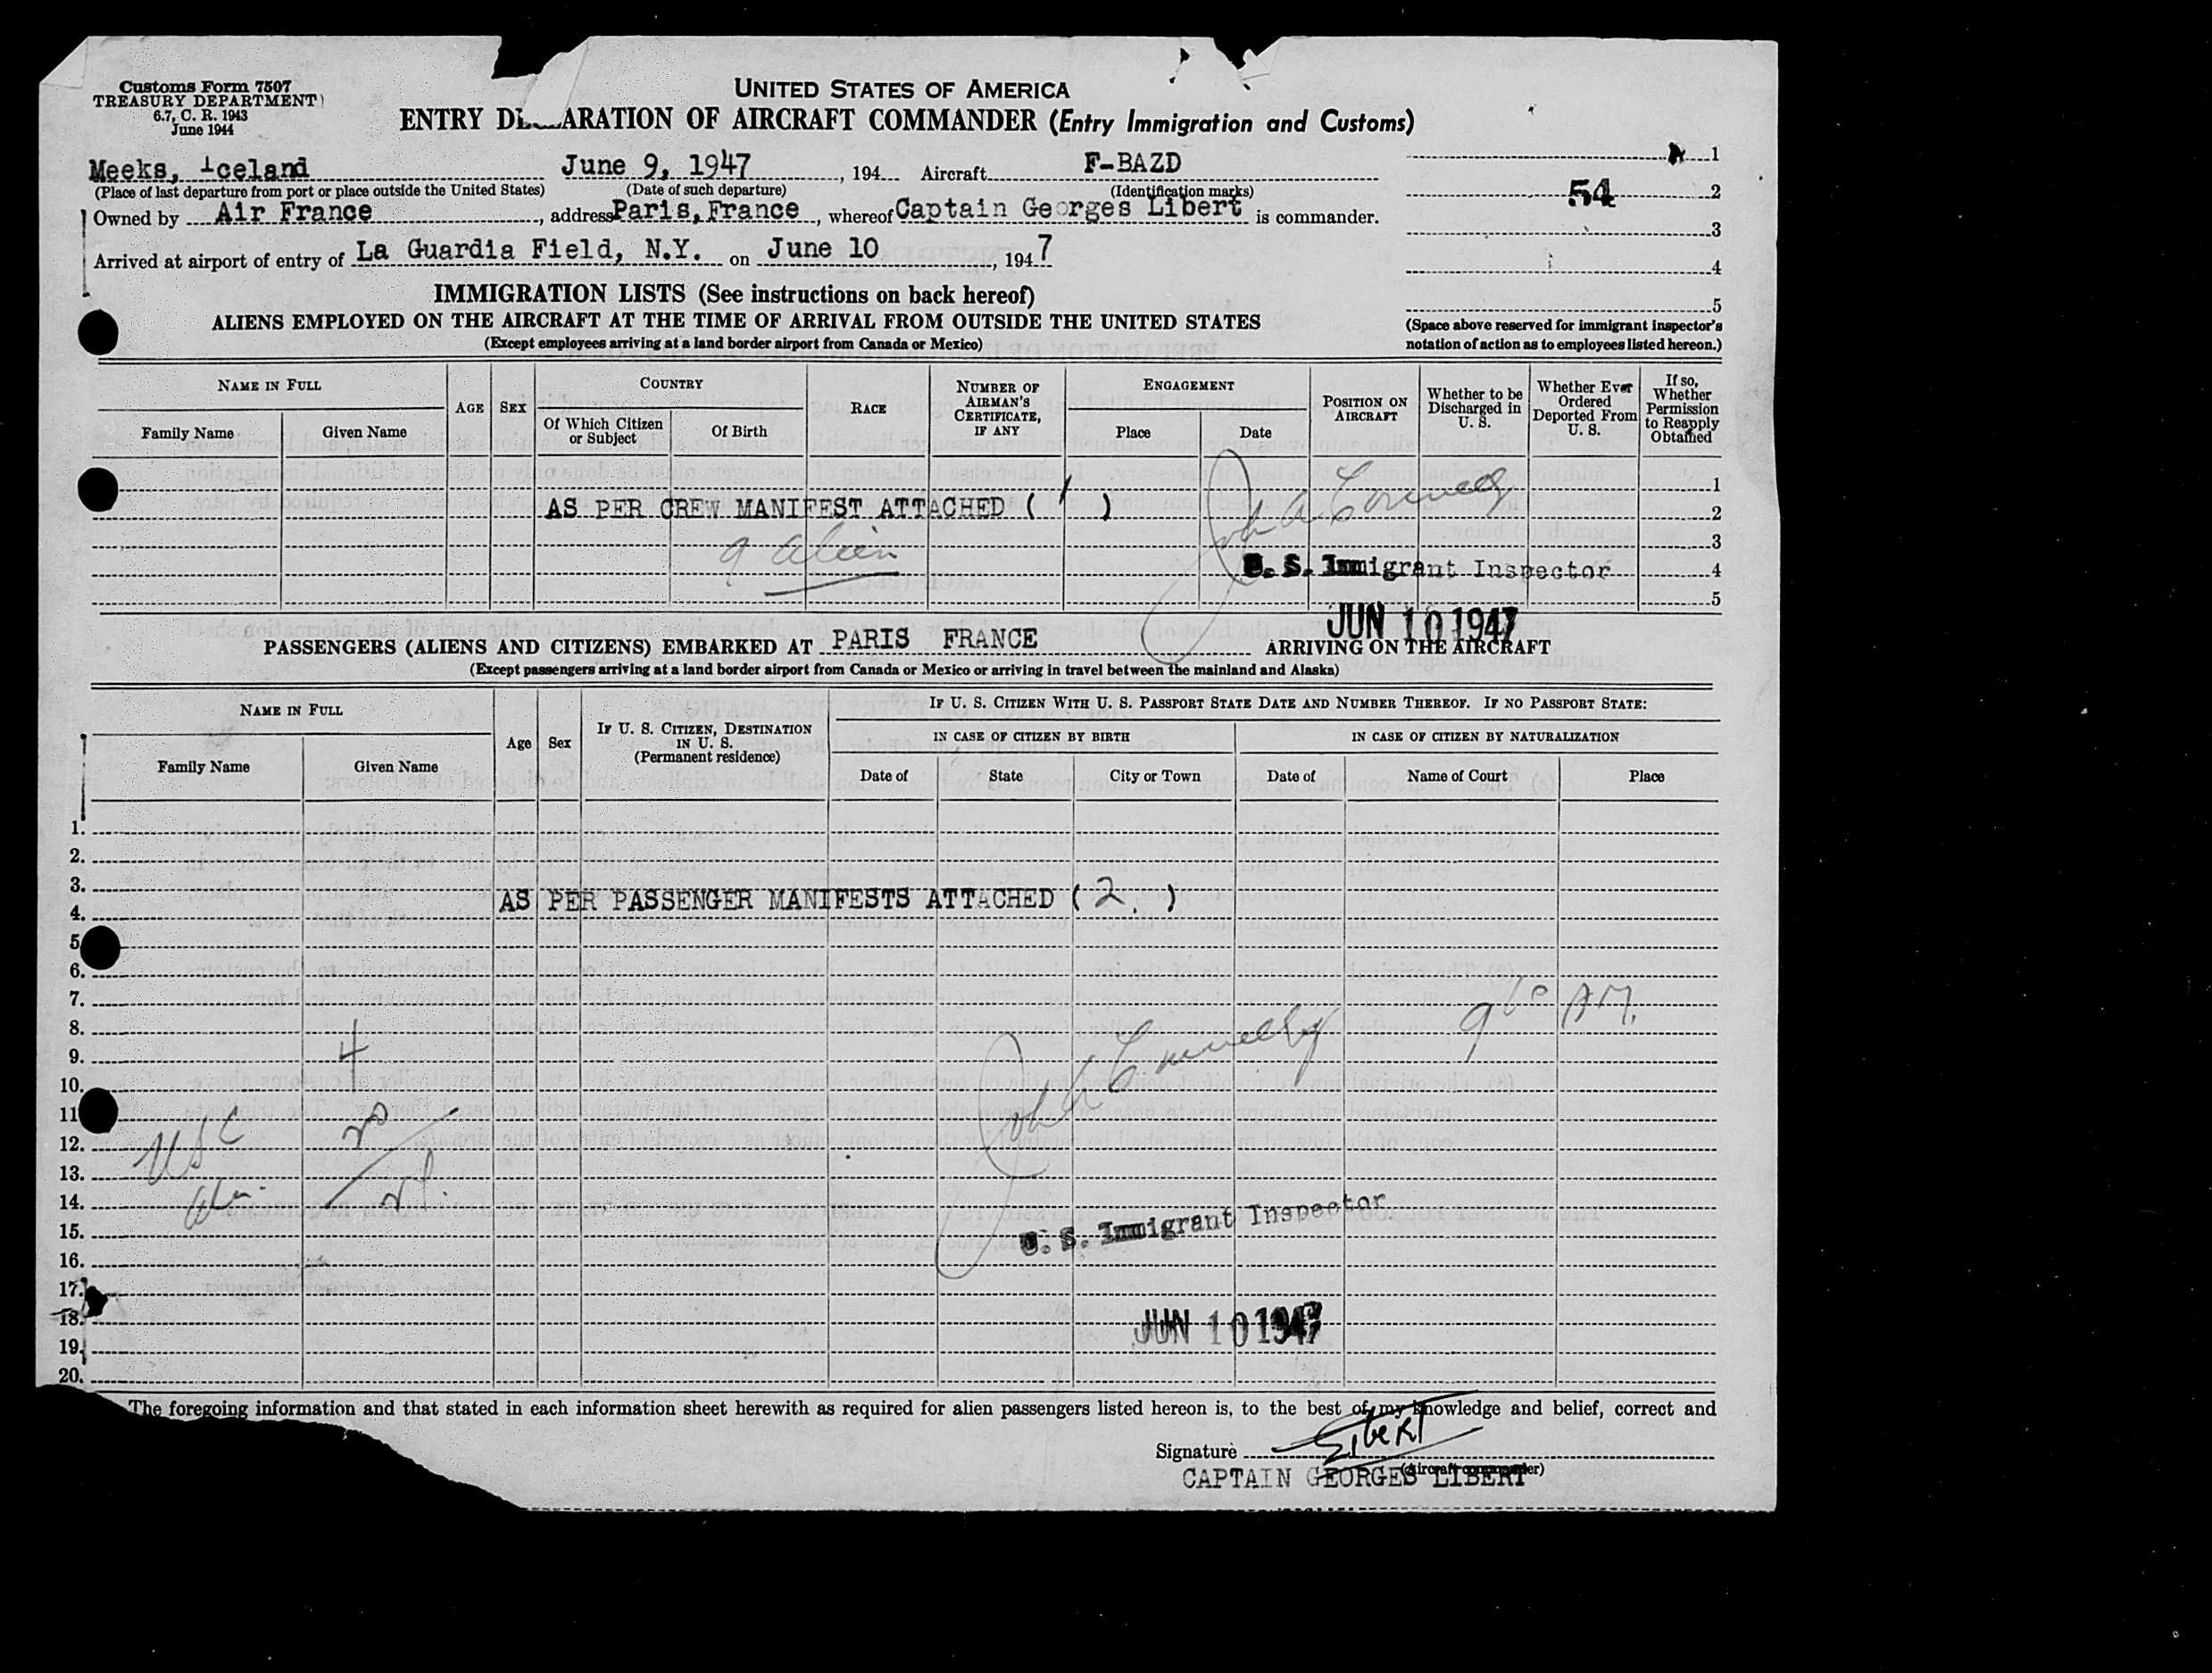 Customs Form 7507
TREASURY DEPARTMENT
6.7, C. R. 1943
June 1944
UNITED STATES OF AMERICA
ENTRY DE ARATION OF AIRCRAFT COMMANDER (Entry Immigration and Customs)
Meeks, Iceland June 9, 1947, 194 Aircraft F-BAZD
(Place of last departure from port or place outside the United States) (Date of such departure) (Identification marks)
Owned by Air France, address Paris, France, whereof Captain Georges Libert is commander.
Arrived at airport of entry of La Guardia Field, N.Y. on June 10, 1947
1
54 2
3
4
5
(Space above reserved for immigrant inspector's
notation of action as to employees listed hereon.)
IMMIGRATION LISTS (See instructions on back hereof)
ALIENS EMPLOYED ON THE AIRCRAFT AT THE TIME OF ARRIVAL FROM OUTSIDE THE UNITED STATES
(Except employees arriving at a land border airport from Canada or Mexico)
NAME IN FULL
Family Name
Given Name
AGE
SEX
COUNTRY
Of Which Citizen
or Subject
Of Birth
RACE
NUMBER OF
AIRMAN'S
CERTIFICATE,
IF ANY
ENGAGEMENT
Place
Date
POSITION ON
AIRCRAFT
Whether to be
Discharged in
U. S.
Whether Ever
Ordered
Deported From
U. S.
If so,
Whether
Permission
to Reapply
Obtained
1
AS PER CREW MANIFEST ATTACHED ( 1 ) 2
3
9 alien
John A Connelly
U. S. Immigrant Inspector 4
5
JUN 10 1947
PASSENGERS (ALIENS AND CITIZENS) EMBARKED AT PARIS FRANCE ARRIVING ON THE AIRCRAFT
(Except passengers arriving at a land border airport from Canada or Mexico or arriving in travel between the mainland and Alaska)
NAME IN FULL
Family Name
Given Name
Age
Sex
IF U. S. CITIZEN, DESTINATION
IN U. S.
(Permanent residence)
IF U. S. CITIZEN WITH U. S. PASSPORT STATE DATE AND NUMBER THEREOF. IF NO PASSPORT STATE:
IN CASE OF CITIZEN BY BIRTH
Date of
State
City or Town
IN CASE OF CITIZEN BY NATURALIZATION
Date of
Name of Court
Place
1.
2.
3.
AS PER PASSENGER MANIFESTS ATTACHED ( 2. )
4.
5
6.
7.
9 10 AM.
8.
9. 4
John A Connelly
10.
11
12. USC 20
13.
14.
15.
U. S. Immigrant Inspector
16.
17.
18.
JUN 10 1947
19.
20.
The foregoing information and that stated in each information sheet herewith as required for alien passengers listed hereon is, to the best of my knowledge and belief, correct and
Signature Libert
(Aircraft commander)
CAPTAIN GEORGES LIBERT